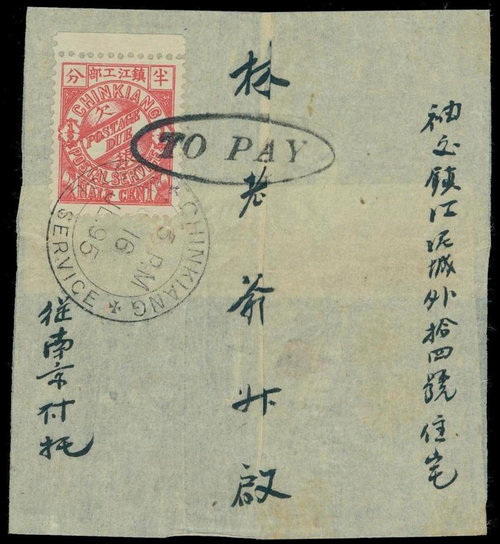 袖交鎮江泥城外拾四號住宅
林老爺升啟
從南京付托
半 鎮江工部 分
CHINKIANG
欠
POSTAGE DUE
POSTAL SERVICE
HALF CENT
TO PAY
CHINKIANG
SERVICE
PM
16
95